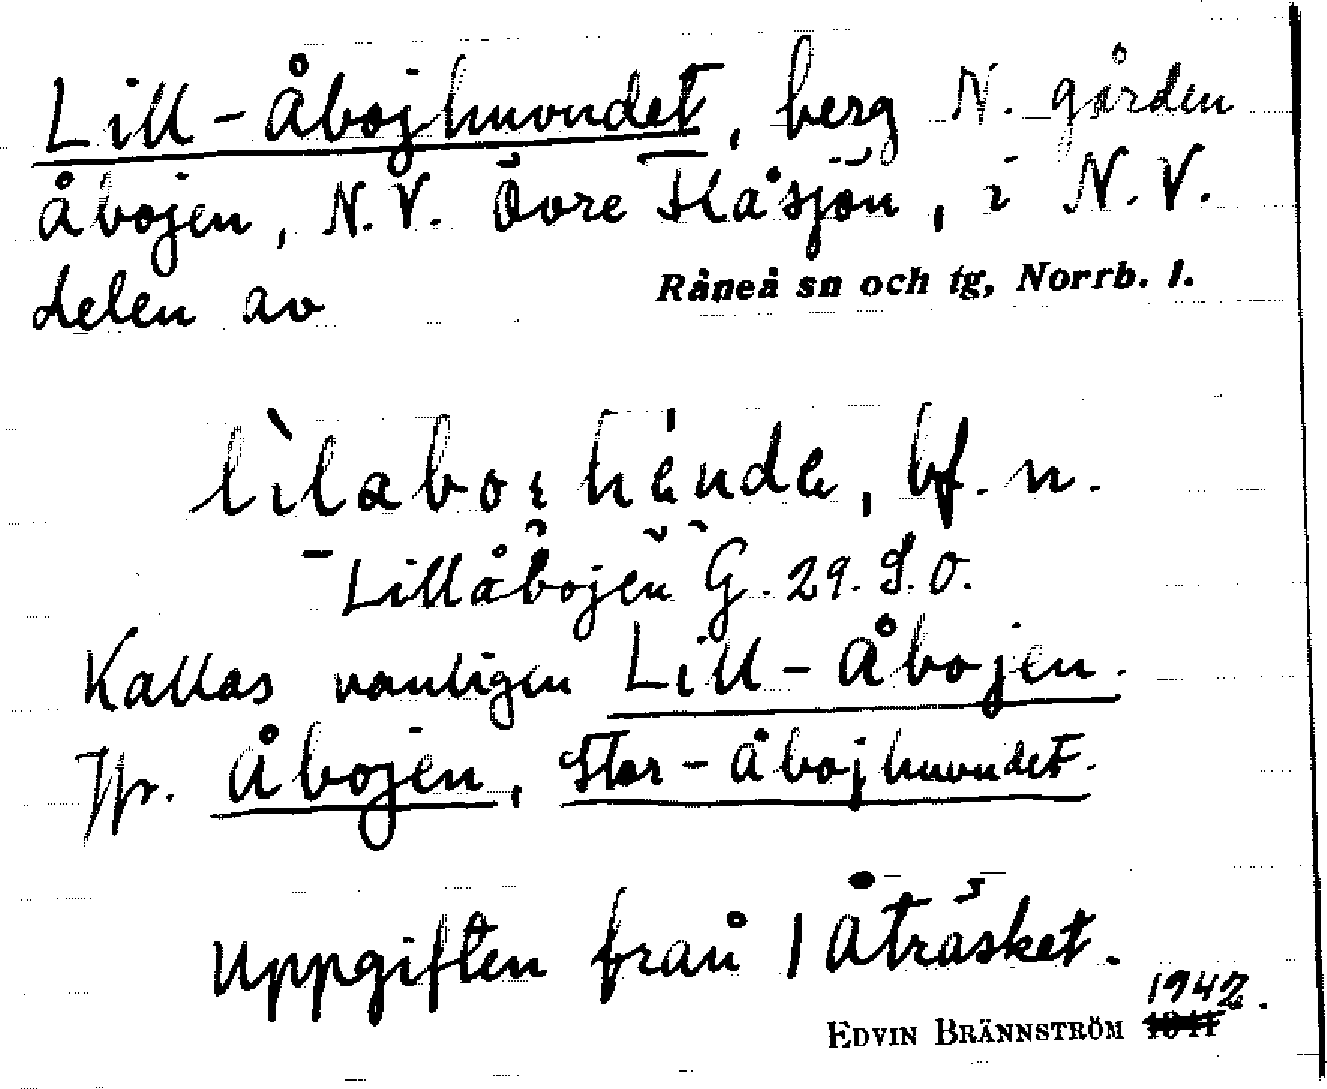 Lill-Åbojhuvudet, berg N. gården
Åbojen, N.V. Övre Flåsjön, i N.V.
delen av Råneå sn och tg, Norrb. l.
bf. n.
- Lillåbojen G. 29. S.O.
Kallas vanligen Lill-Åbojen.
Jfr. Åbojen, Stor-Åbojhuvudet.
Uppgiften från 1 Åträsket.
1942.
EDVIN BRÄNNSTRÖM 1941